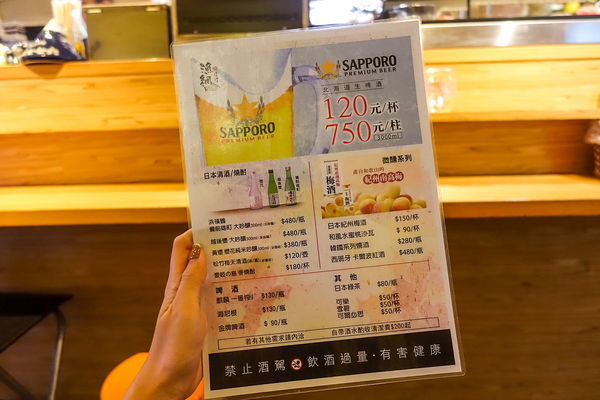 SAPPORO
PREMIUM BEER
北海道生啤酒
120元/杯
750元/柱
3000ml
SAPPORO
PREMIUM BEER
日本清酒/燒酎
$480/瓶
$480/瓶
$380/瓶
$120/壺
$180/杯
微醺系列
產自和歌山的
紀州南高梅
梅酒
日本紀州梅酒 $150/杯
和風水蜜桃沙瓦 $ 90/杯
韓國系列燒酒 $280/瓶
西班牙 卡爾波紅酒 $480/瓶
啤酒
麒麟 一番搾 $130/瓶
海尼根 $130/瓶
金牌啤酒 $ 90/瓶
其他
日本綠茶 $80/瓶
可樂 $50/杯
雪碧 $50/杯
可爾必思 $50/杯
若有其他需求請內洽
自帶酒水酌收清潔費$200起
禁止酒駕 飲酒過量·有害健康